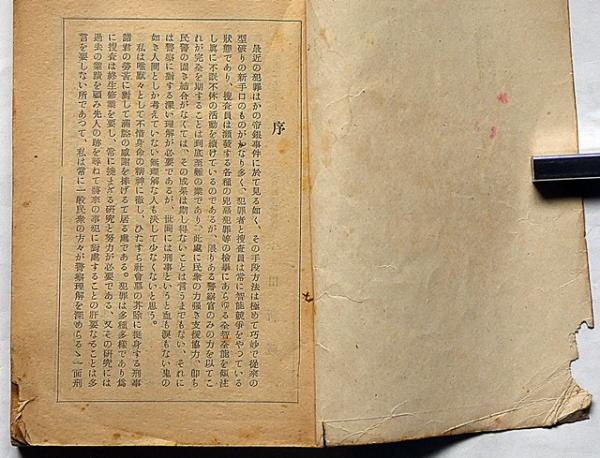 序
最近の犯罪はかの帝銀事件に於て見る如く、その手段方法は極めて巧妙で從來の
型破りの新手口のものがかなり多く、犯罪者と捜査員は常に智能競爭をやつている
狀態であり、捜査員は頻發する各種の兇惡犯罪等の檢擧にあらゆる全智全能を傾注
し眞に不眠不休の活動を續けているのであるが、限りある警察官のみの力を以てこ
れが完全を期することは到底至難の業であり、此處に民衆の力强き支援協力、卽ち
民警の固き結合がなくては、その成果は期し得ないことは言うまでもない、それに
は警察に對する深い理解が必要であるが、世間には刑事というと血も淚もない鬼の
如き人間としか考えていない無理解な人も決して少なくないと思う。
私は唯默々として不惜身命の精神に徹し、ひたすら社會惡の芟除に挺身する刑事
諸君の勞苦に對して滿腔の感謝を捧げて居る處である。犯罪は多種多樣であり爲
に捜査は終生修養を要し、常に撓まざる研究と努力が必要である、又その研究には
過去の業績を顧み先人の跡を尋ねて將來の事犯に對處することの肝要なることは多
言を要しない所であつて、私は常に一般民衆の方々が警察理解を深めらるゝ一面刑